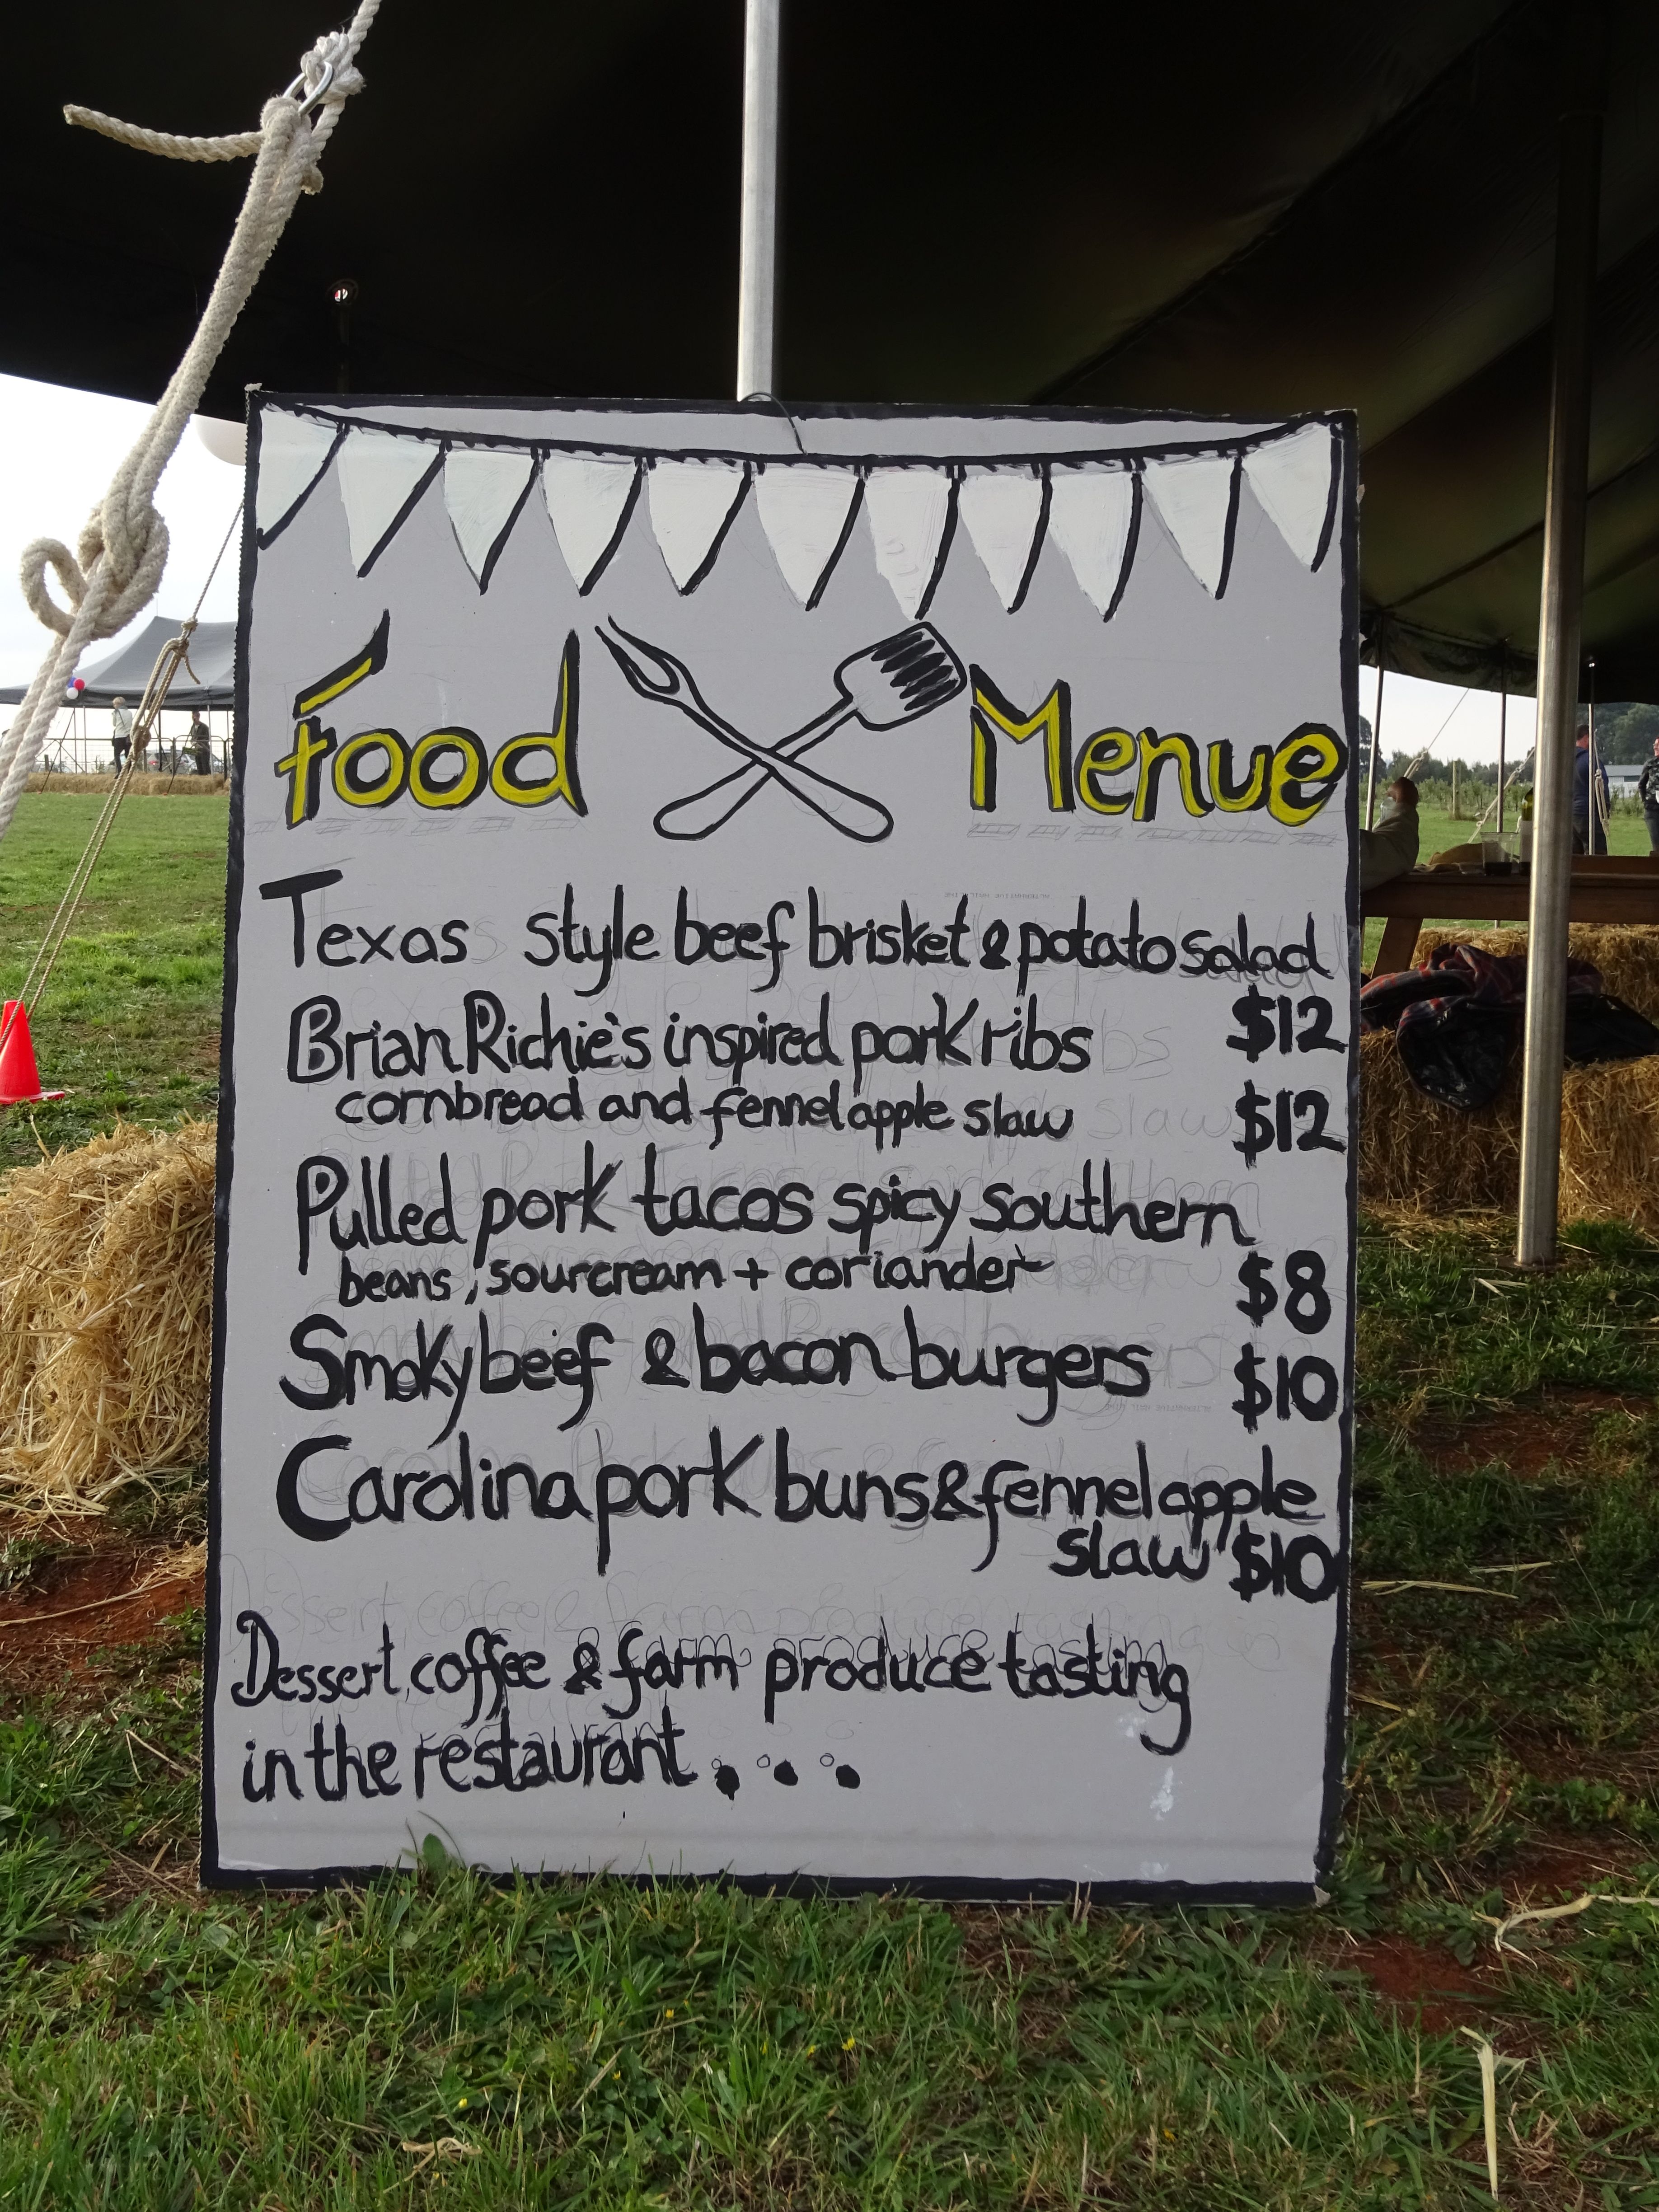 Food Menue
Texas style beef brisket & potato salad
$12
Brian Richie's inspired pork ribs
cornbread and fennel apple slaw $12
Pulled pork tacos spicy southern
beans, sourcream + coriander $8
Smoky beef & bacon burgers $10
Carolina pork buns & fennel apple
slaw $10
Dessert, coffee & farm produce tasting
in the restaurant...